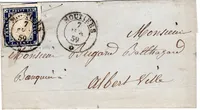 MOUTIERS
7
59
Monsieur
Monsieur Dugard Balthazard
Banquier
Albert Ville